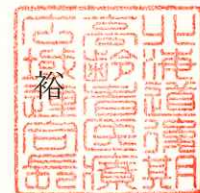 北海道後期
高齢者医療
広域連合印
裕